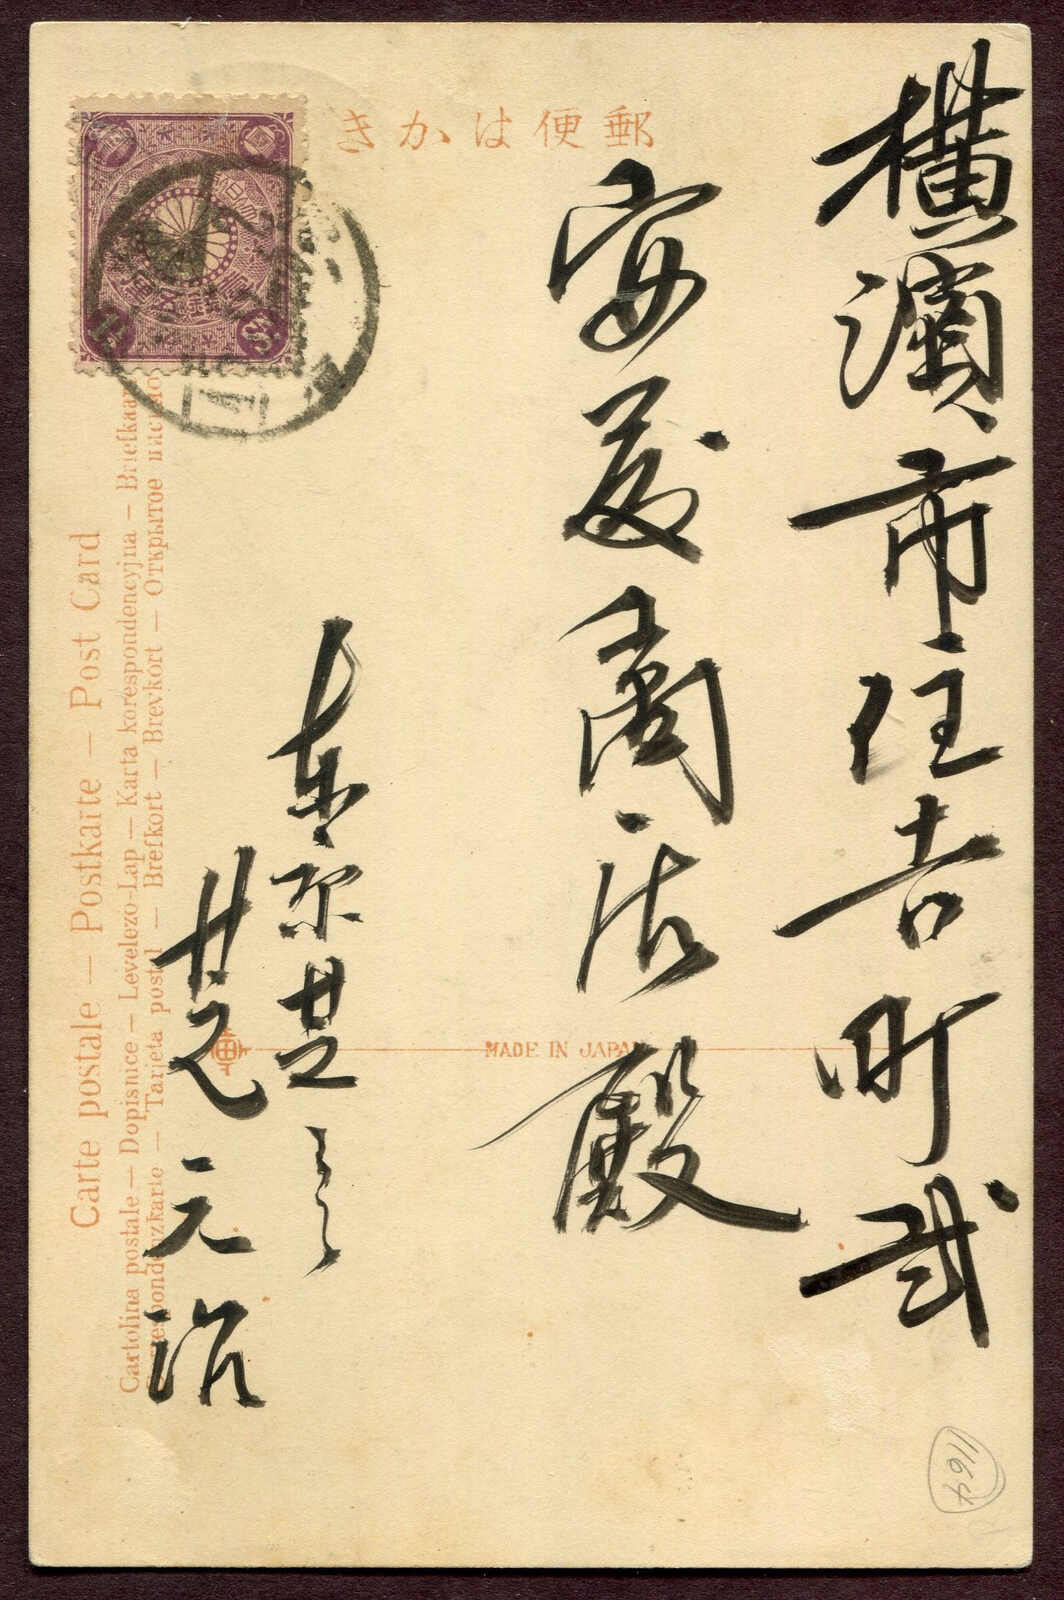 郵便はかき
横濱市住吉町弐
安藤商店殿
東京芝
芝元治
Carte postale — Postkarte — Post Card
Cartolina postale — Dopisnice — Levelezo-Lap — Karta korespondencyjna — Briefkaart
Correspondenzkarte — Tarjeta postal — Brefkort — Brevkort — Открытое письмо
MADE IN JAPAN
1164